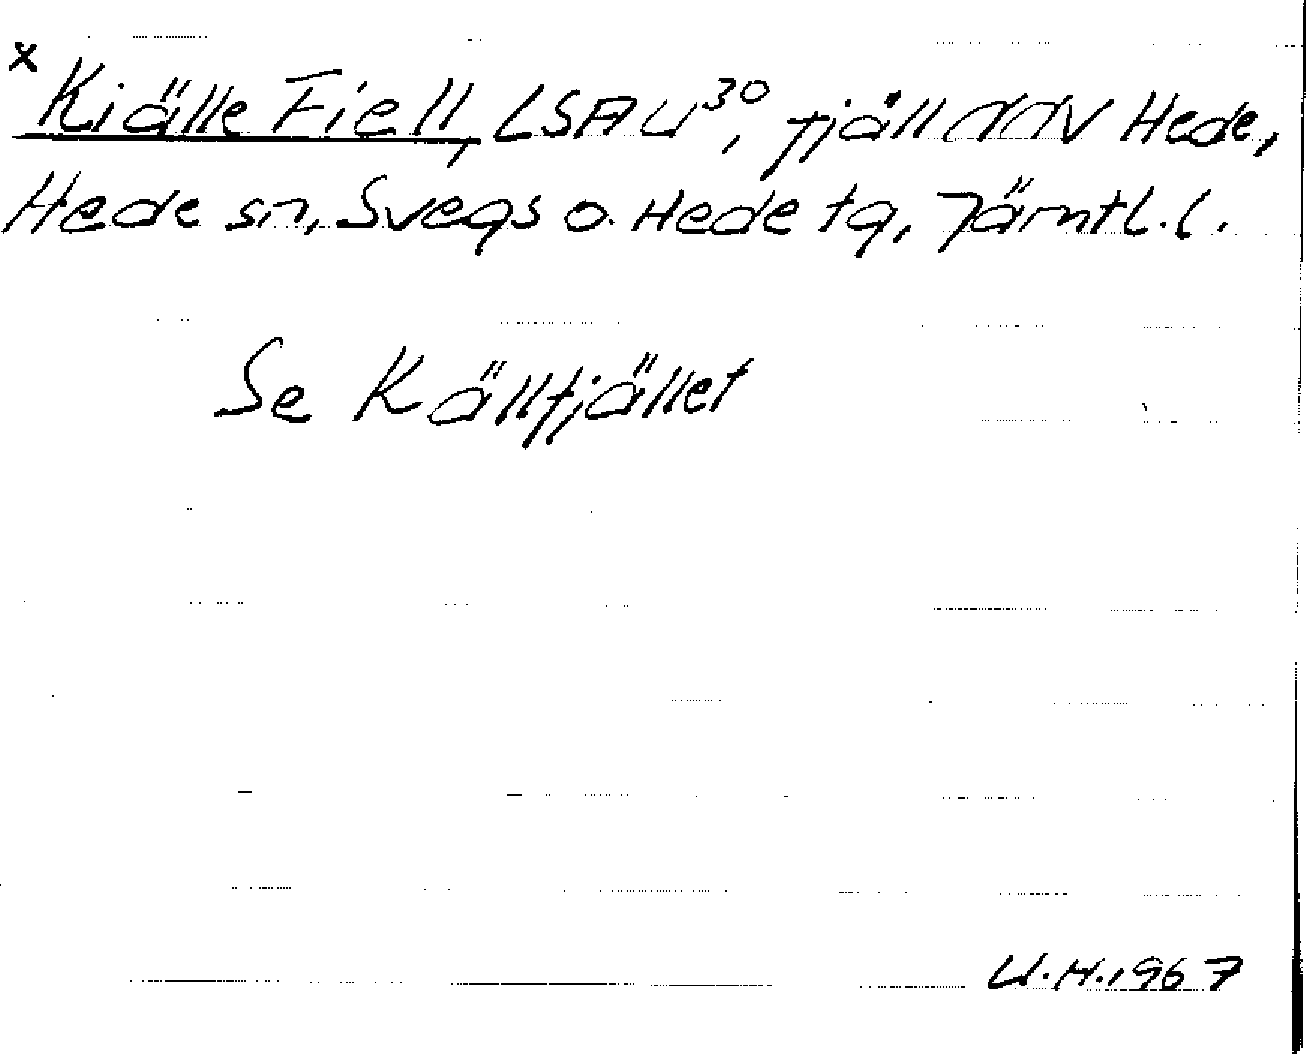 x Kiälle Fiell, LSA U³⁰, fjäll NNV Hede,
Hede sn, Svegs o. Hede tg, Jämtl. l.
Se Källfjället
U.H. 1967